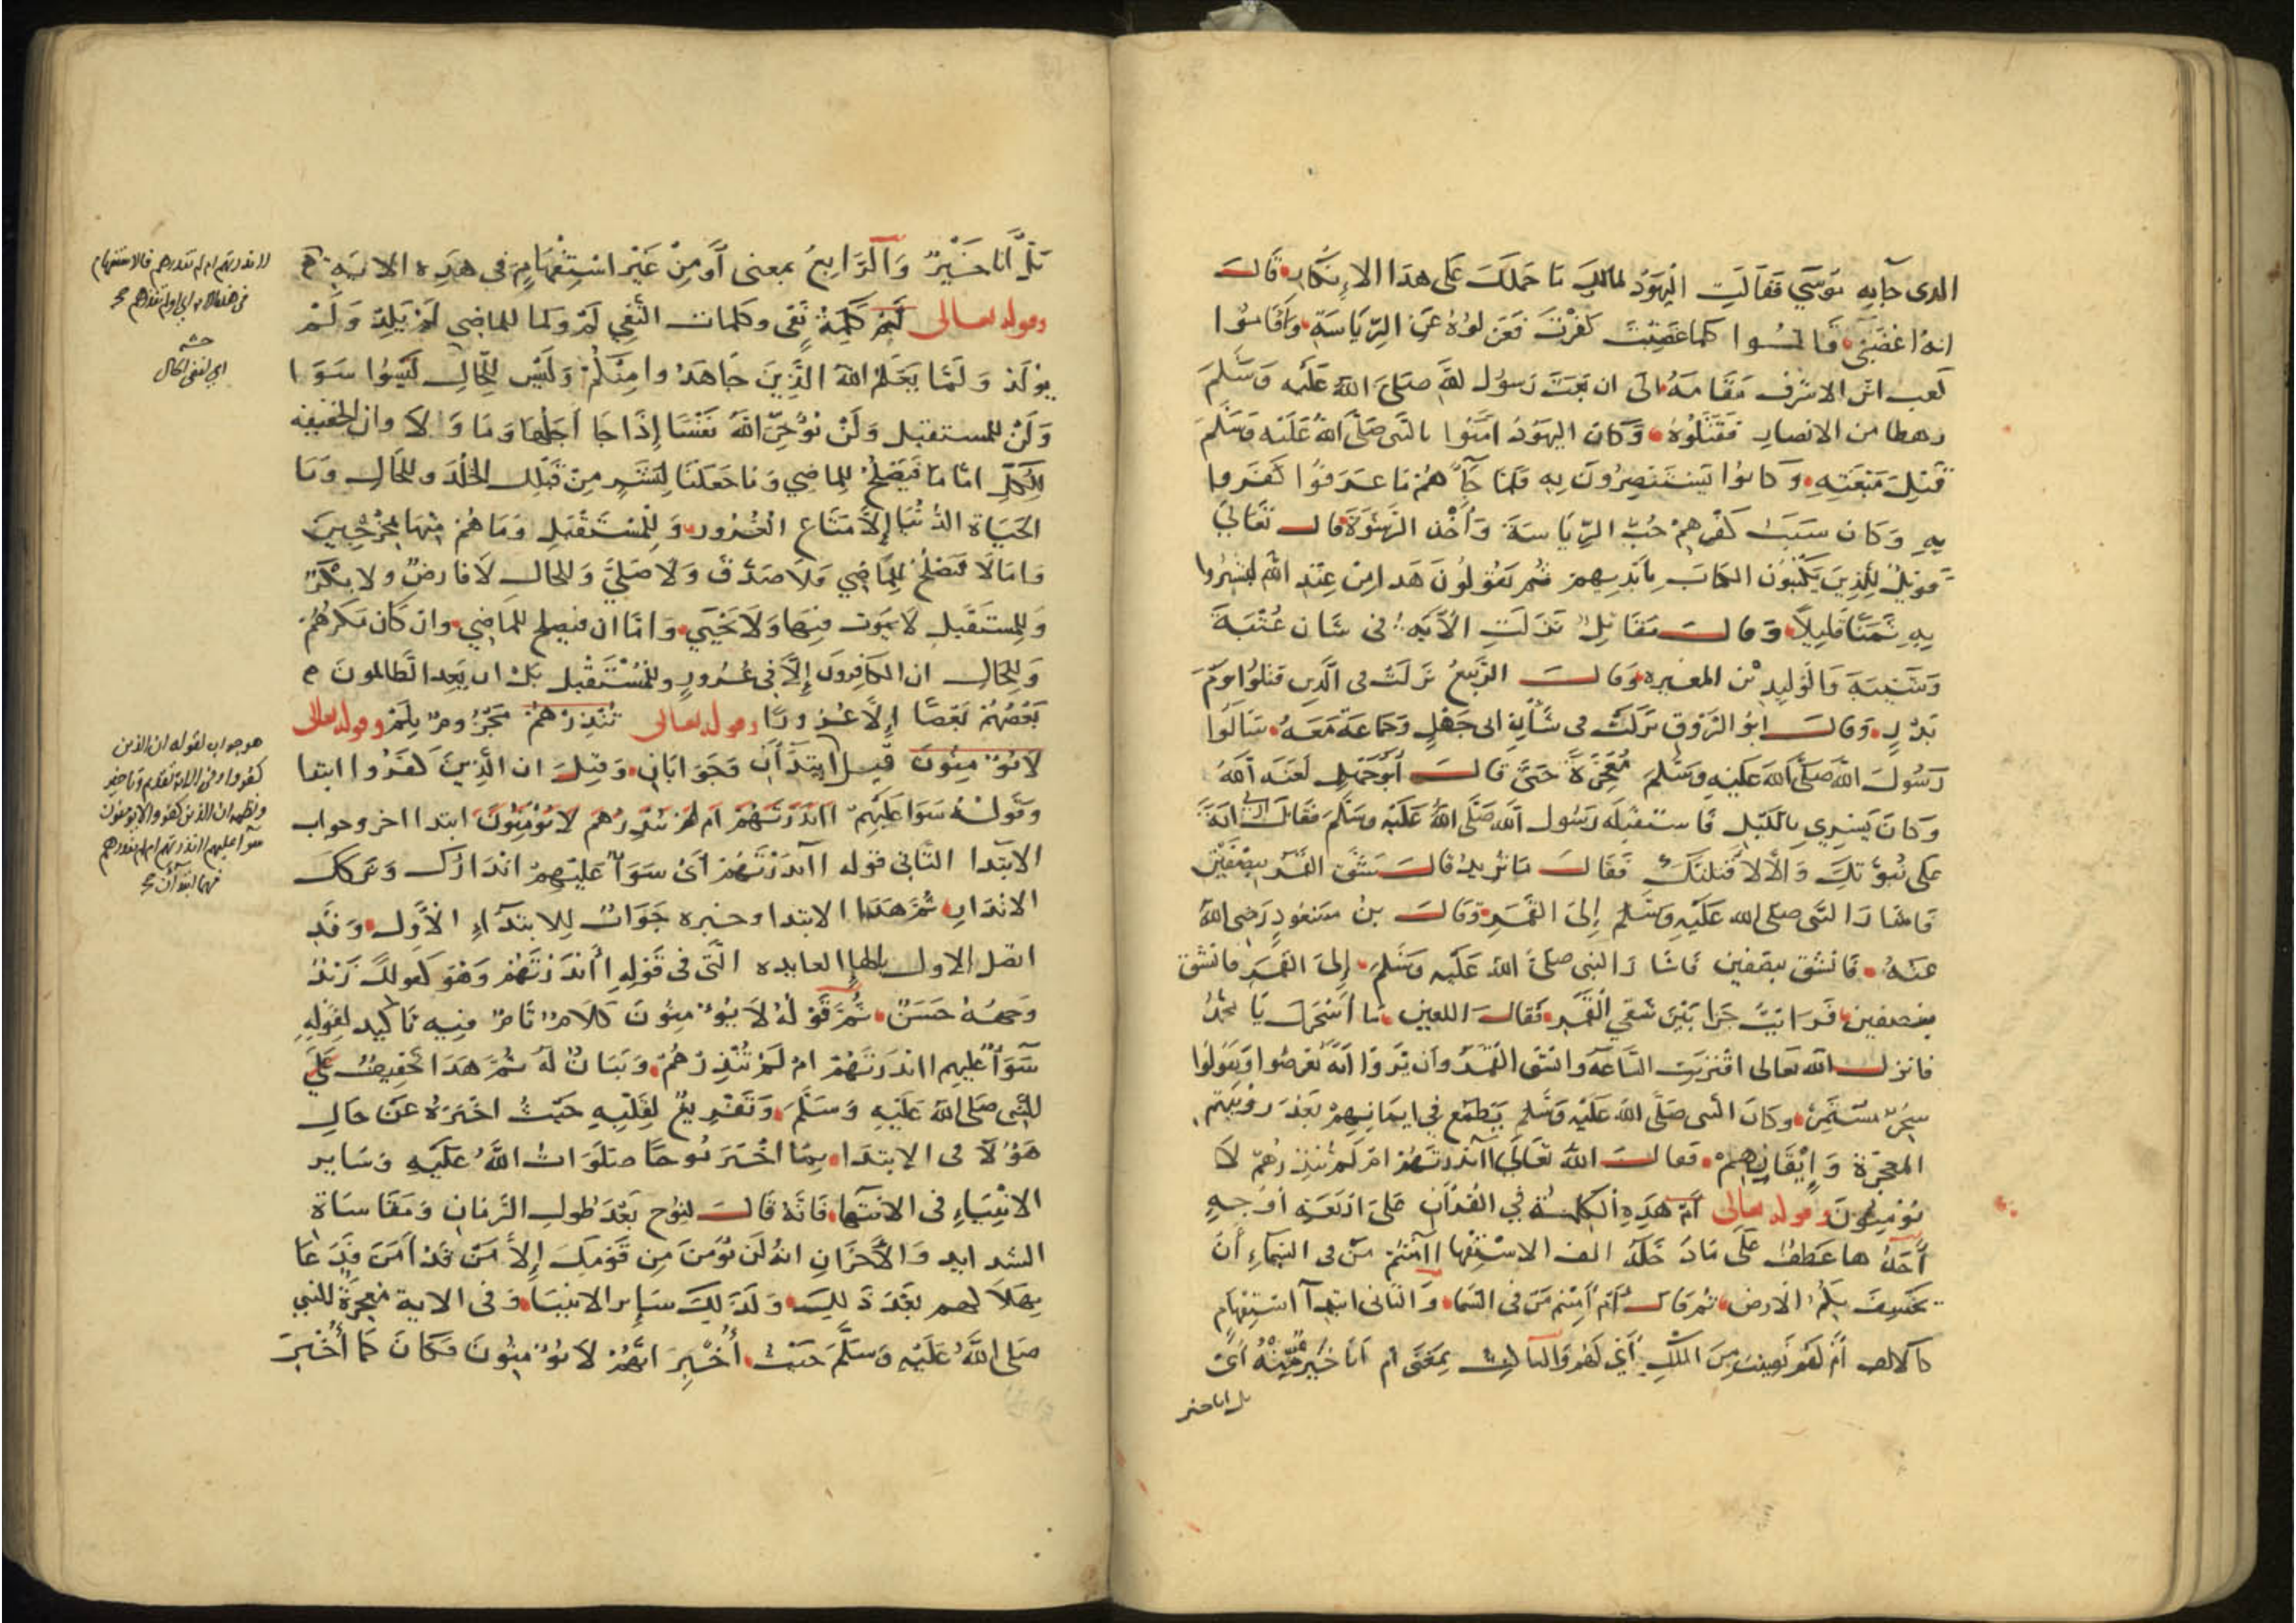 الذي جآ به موسي فقالت اليهود لمالك ما حملك على هذا الانكار قال
انه اغضبني قالوا كلما غضبت كفرت فعزلوه عن الرياسة واقاموا
كعب ابن الاشرف مقامه الى ان بعث رسول الله صلى الله عليه وسلم
رهطا من الانصار فقتلوه وكان اليهود امنوا بالنبي صلى الله عليه وسلم
قبل مبعثه وكانوا يستنصرون به فلما جآهم ما عرفوا كفروا
به وكان سبب كفرهم حب الرياسة واخذ الرشوة قال تعالى
فويل للذين يكتبون الكتاب بايديهم ثم يقولون هذا من عند الله ليشتروا
به ثمنا قليلا وقال مقاتل نزلت الآية في شان عتبة
وشيبة والوليد بن المغيره وقال الربيع نزلت في الذين قتلوا يوم
بدر وقال ابو الروق نزلت في شأن ابي جهل وجماعة معه سالوا
رسول الله صلى الله عليه وسلم معجزة حتى قال ابو جهل لعنه الله
وكان يسري بالليل فاستقبله رسول الله صلى الله عليه وسلم فقال ارني اية
على نبوتك والا لاقتلنك فقال ما تريد قال شق القمر بنصفين
فاشار النبي صلى الله عليه وسلم إلى القمر وقال بن مسعود رضي الله
عنه فانشق بنصفين فاشار النبي صلى الله عليه وسلم إلى القمر فانشق
بنصفين فرايت حرا بين شقي القمر فقال اللعين ما اسحرك يا محمد
فانزل الله تعالى اقتربت الساعة وانشق القمر وان يروا اية يعرضوا ويقولوا
سحر مستمر وكان النبي صلى الله عليه وسلم يطمع في ايمانهم بعد رؤيتهم
المعجزة وإيقانهم فقال الله تعالى أانذرتهم ام لم تنذرهم لا
يؤمنون وقوله تعالى أم هذه الكلمة في القرآن على اربعة أوجه
أحدها عطف على ما دخله الف الاستفهام أامنتم من في السماء أن
يخسف بكم الارض ثم قال أم أمنتم من في السما والثاني ابتدآ استفهام
كالالف أم لهم نصيب من الملك أي لهم والثالث بمعنى ام أنا خير منه أي
بل انا خير
بل أنا خير والرابع بمعنى أو من غير استفهام في هذه الاية
وقوله تعالى لم كلمة نفي وكلمات النفي لم ولما للماضي لم يلد ولم
يولد ولما يعلم الله الذين جاهدوا منكم وليس للحال ليسوا سوا
ولن للمستقبل ولن يؤخر الله نفسا إذا جا أجلها وما ولا وان الخفيفه
للكل اما ما فيصلح للماضي وما جعلنا لبشر من قبلك الخلد وللحال وما
الحياة الدنيا إلا متاع الغرور وللمستقبل وما هم منها بمخرجين
واما لا فتصلح للماضي فلا صدق ولا صلى وللحال لا فارض ولا بكر
وللمستقبل لا يموت فيها ولا يحيي واما ان فيصلح للماضي وان كان مكرهم
وللحال ان الكافرون إلا في غرور وللمستقبل بل ان يعد الظالمون
بعضهم بعضا إلا غرورا وقوله تعالى تنذرهم مجزوم بلم وقوله تعالى
لا يؤمنون قيل ابتدآن وجوابان وقيل ان الذين كفروا ابتدا
وقوله سوا عليهم أانذرتهم ام لم تنذرهم لا يؤمنون ابتدا اخر وجواب
الابتدا الثاني قوله أانذرتهم أي سوآ عليهم انذارك وتركك
الانذار ثم هذا الابتدا وخبره جواب للابتدآء الأول وقد
اتصل الاول بالهاء العايده التي في قوله أأنذرتهم وهو كقولك زيد
وجهه حسن ثم قوله لا يؤمنون كلام تام فيه تاكيد لقوله
سوآ عليهم أانذرتهم ام لم تنذرهم وبيان له ثم هذا تخفيف على
النبي صلى الله عليه وسلم وتفريغ لقلبه حيث اخبره عن حال
هؤلآ في الابتدا بما اخبر نوحا صلوات الله عليه وساير
الانبياء في الانتهآ فانه قال لنوح بعد طول الزمان ومقاساة
الشدايد والأحزان انه لن يؤمن من قومك إلا من قد آمن فدعا
بهلاكهم بعد ذلك وكذلك ساير الانبيا وفي الاية معجزة للنبي
صلى الله عليه وسلم حيث أخبر انهم لا يؤمنون فكان كما أخبر
أانذرتهم ام لم تنذرهم فالاستفهام
في هذا اي او لم تنذرهم
اي لنفي الحال
هو جواب لقوله ان الذين
كفروا وفي الاية تقديم وتاخير
ونظمه ان الذين كفروا لا يومنون
سوآ عليهم أانذرتهم ام لم تنذرهم
فهما ابتدآن